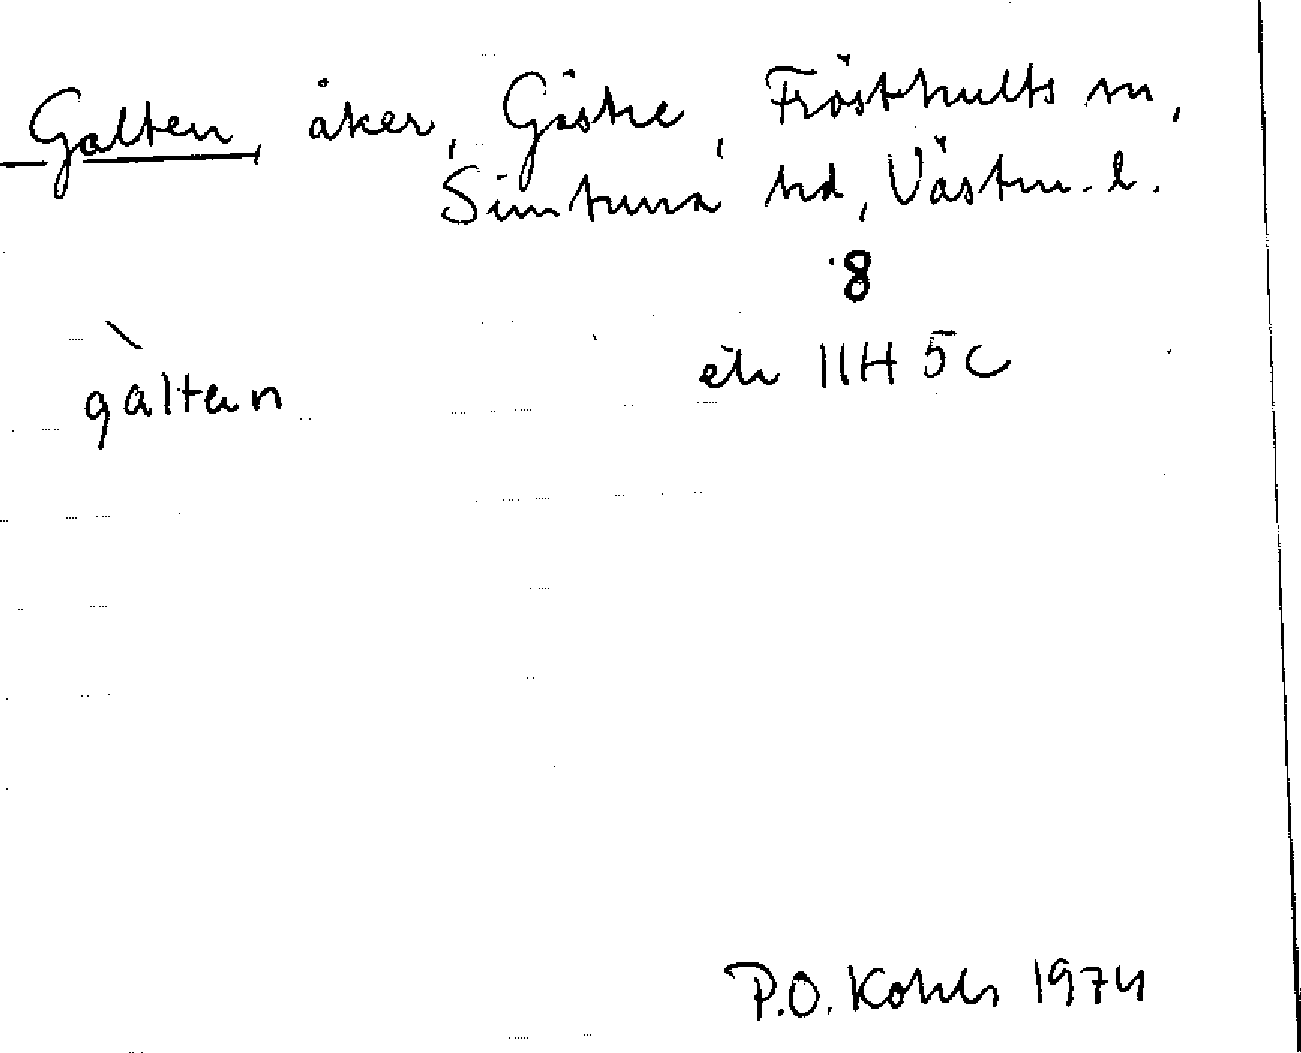 Galten, åker, Gäske, Frösthults sn,
Simtuna hd, Västm. l.
8
ek 11H 5c
galtan
P.O. Kohls 1974